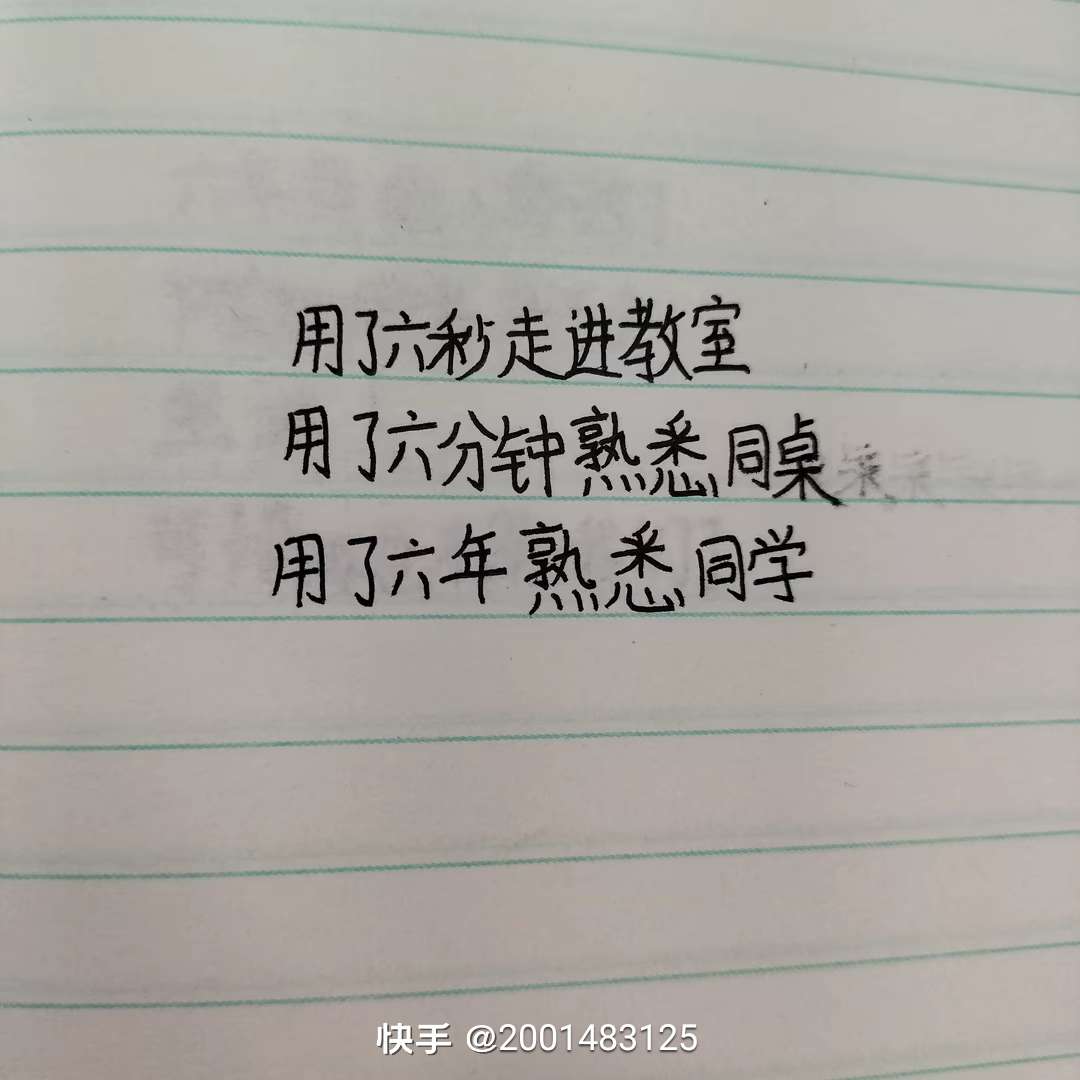 用了六秒走进教室
用了六分钟熟悉同桌
用了六年熟悉同学
快手 @2001483125